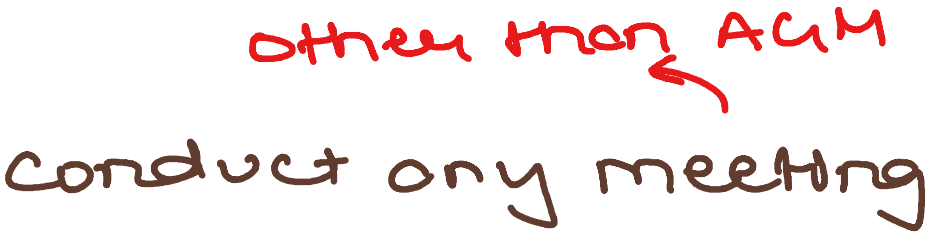 other than AGM
conduct any meeting